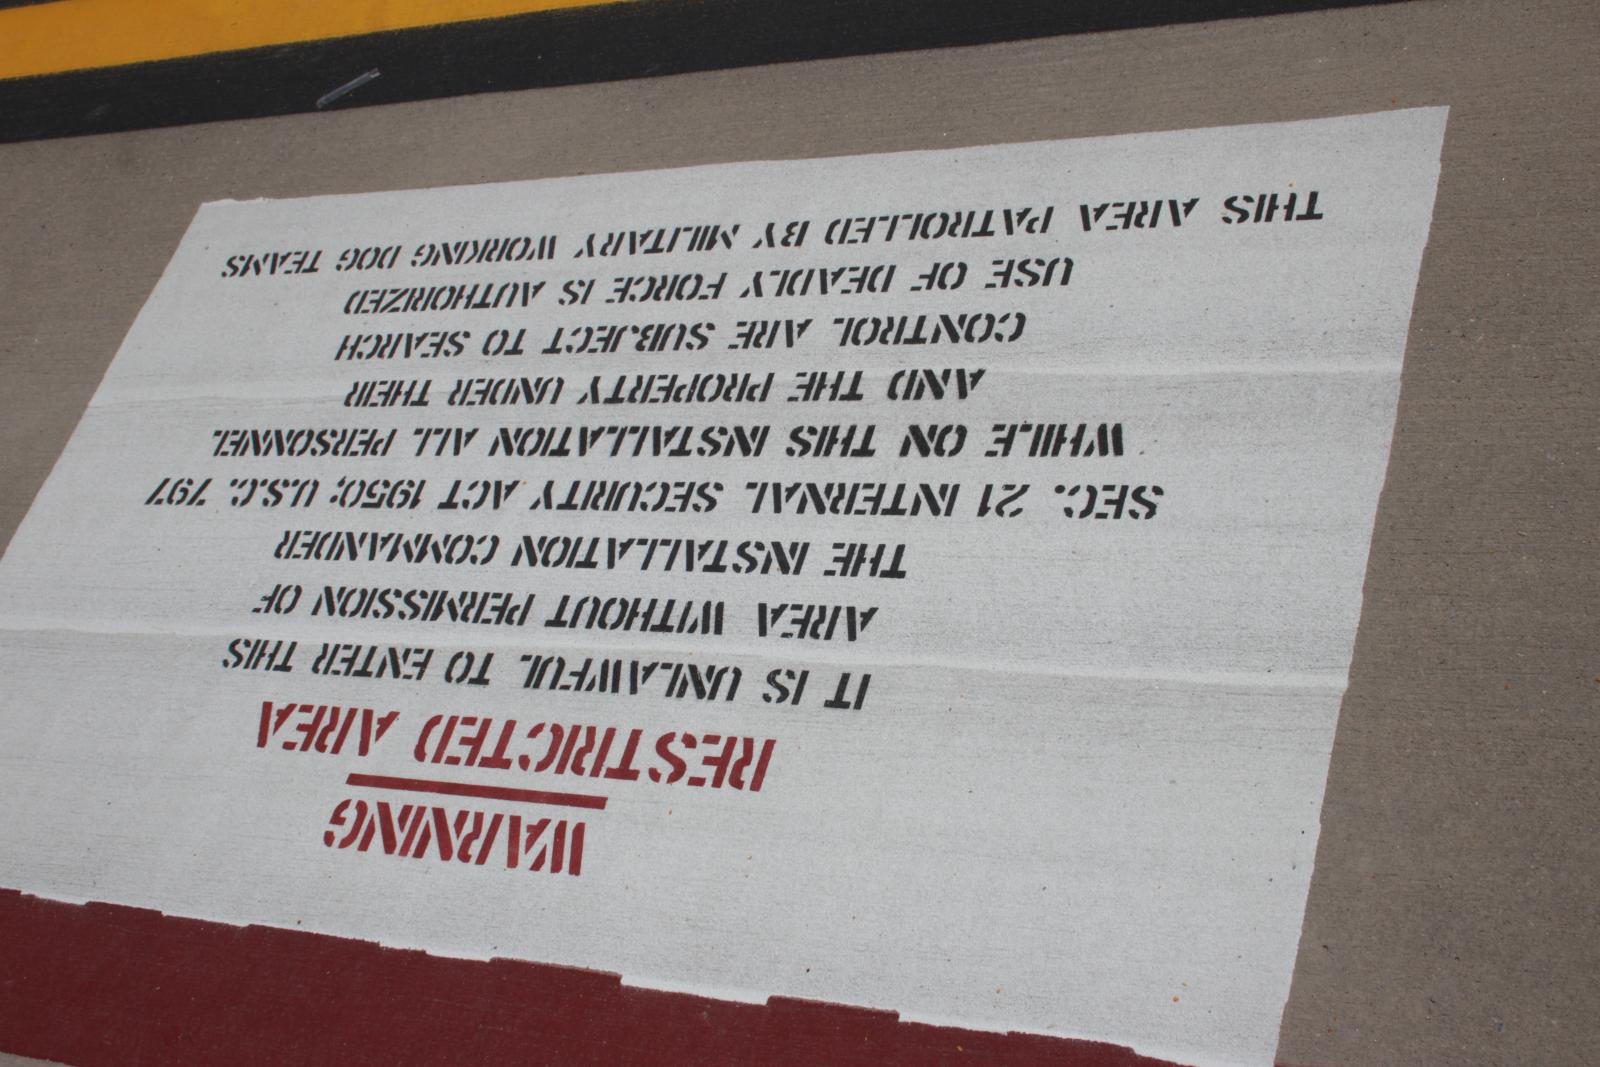 WARNING
RESTRICTED AREA
IT IS UNLAWFUL TO ENTER THIS
AREA WITHOUT PERMISSION OF
THE INSTALLATION COMMANDER
SEC. 21 INTERNAL SECURITY ACT 1950; U.S.C. 797
WHILE ON THIS INSTALLATION ALL PERSONNEL
AND THE PROPERTY UNDER THEIR
CONTROL ARE SUBJECT TO SEARCH
USE OF DEADLY FORCE IS AUTHORIZED
THIS AREA PATROLLED BY MILITARY WORKING DOG TEAMS